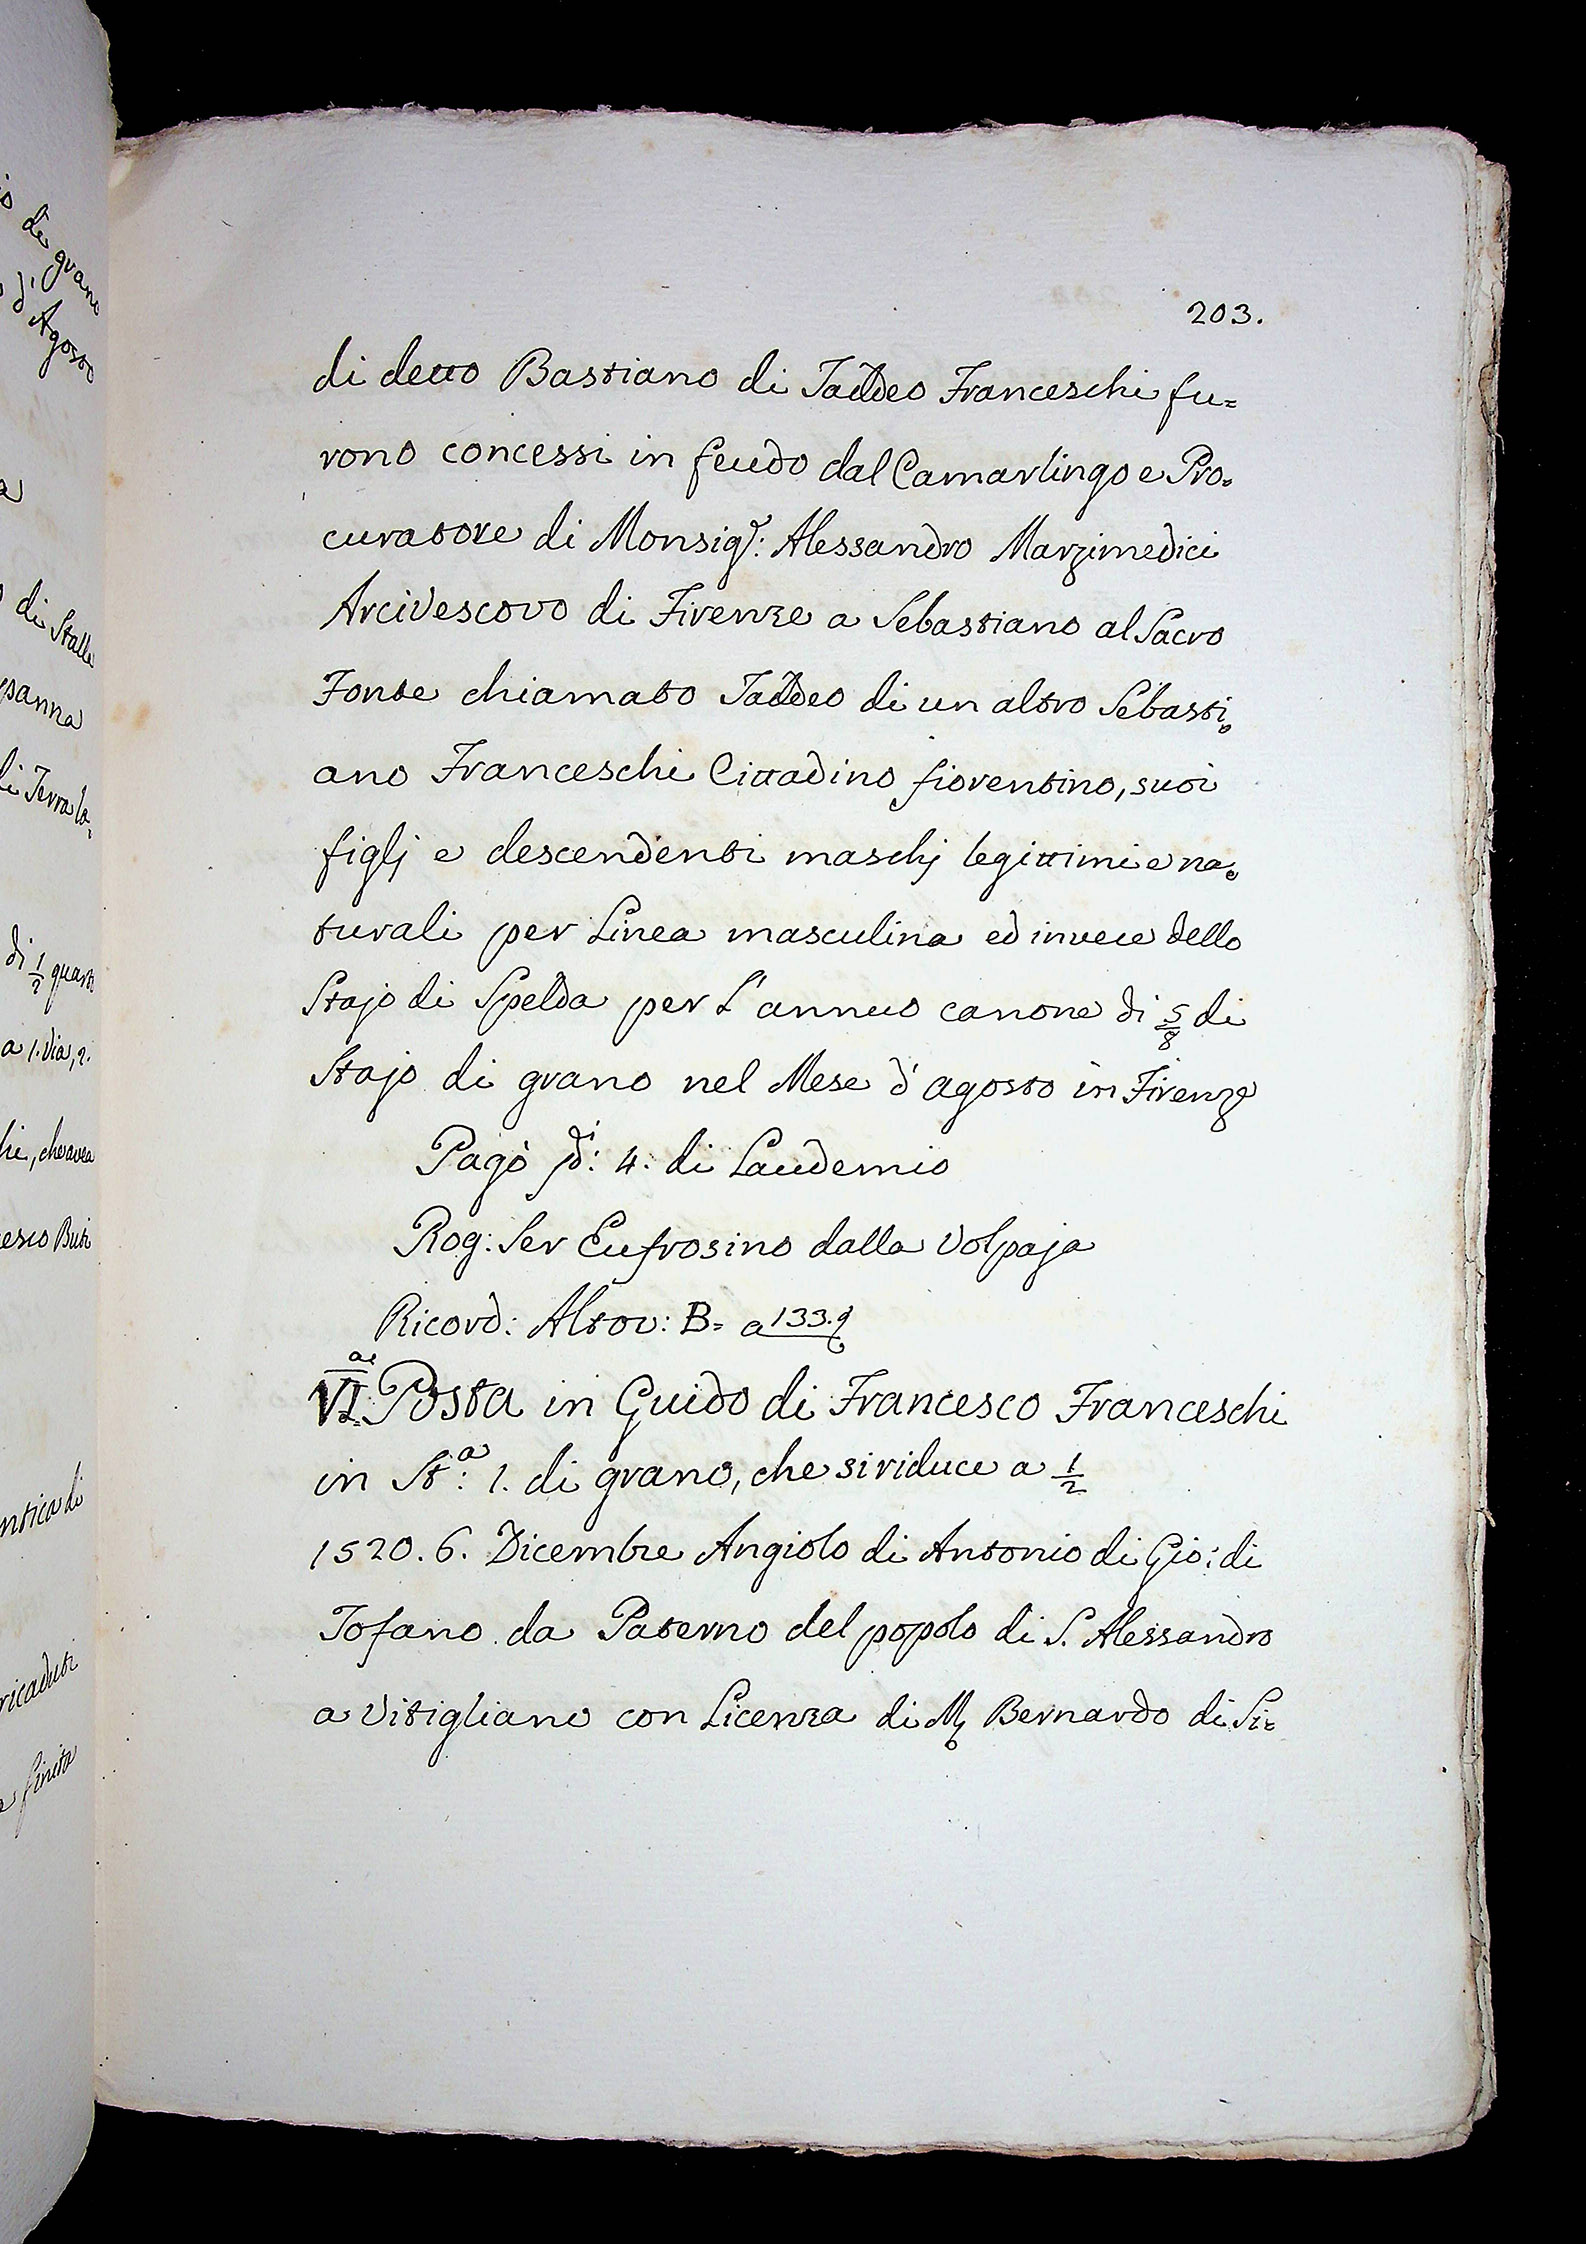 io di grano
d'Agosto
di Stalle
panna
di Terra la,
di 1/2 quarto
a 1. via, 2.
che avea
cesco Buti
antica di
ricaduti
e finita
203.
di detto Bastiano di Taddeo Franceschi fu=
rono concessi in feudo dal Camarlingo e Pro=
curatore di Monsig.r: Alessandro Marzimedici
Arcivescovo di Firenze a Sebastiano al Sacro
Fonte chiamato Taddeo di un altro Sebasti=
ano Franceschi Cittadino fiorentino, suoi
figlj e descendenti maschj legittimi e na=
turali per Linea masculina ed invece dello
Stajo di Spelda per l'annuo canone di 5/8 di
Stajo di grano nel Mese d'agosto in Firenze
Pagò : 4. di Laudemio
Rog: Ser Eufrosino dalla Volpaja
Ricord: Altov: B= a 133.
VI.a Posta in Guido di Francesco Franceschi
in St.a: 1. di grano, che si riduce a 1/2
1520. 6. Dicembre Angiolo di Antonio di Gio: di
Tofano da Paterno del popolo di S. Alessandro
a Vitigliano con Licenza di M. Bernardo di Si=